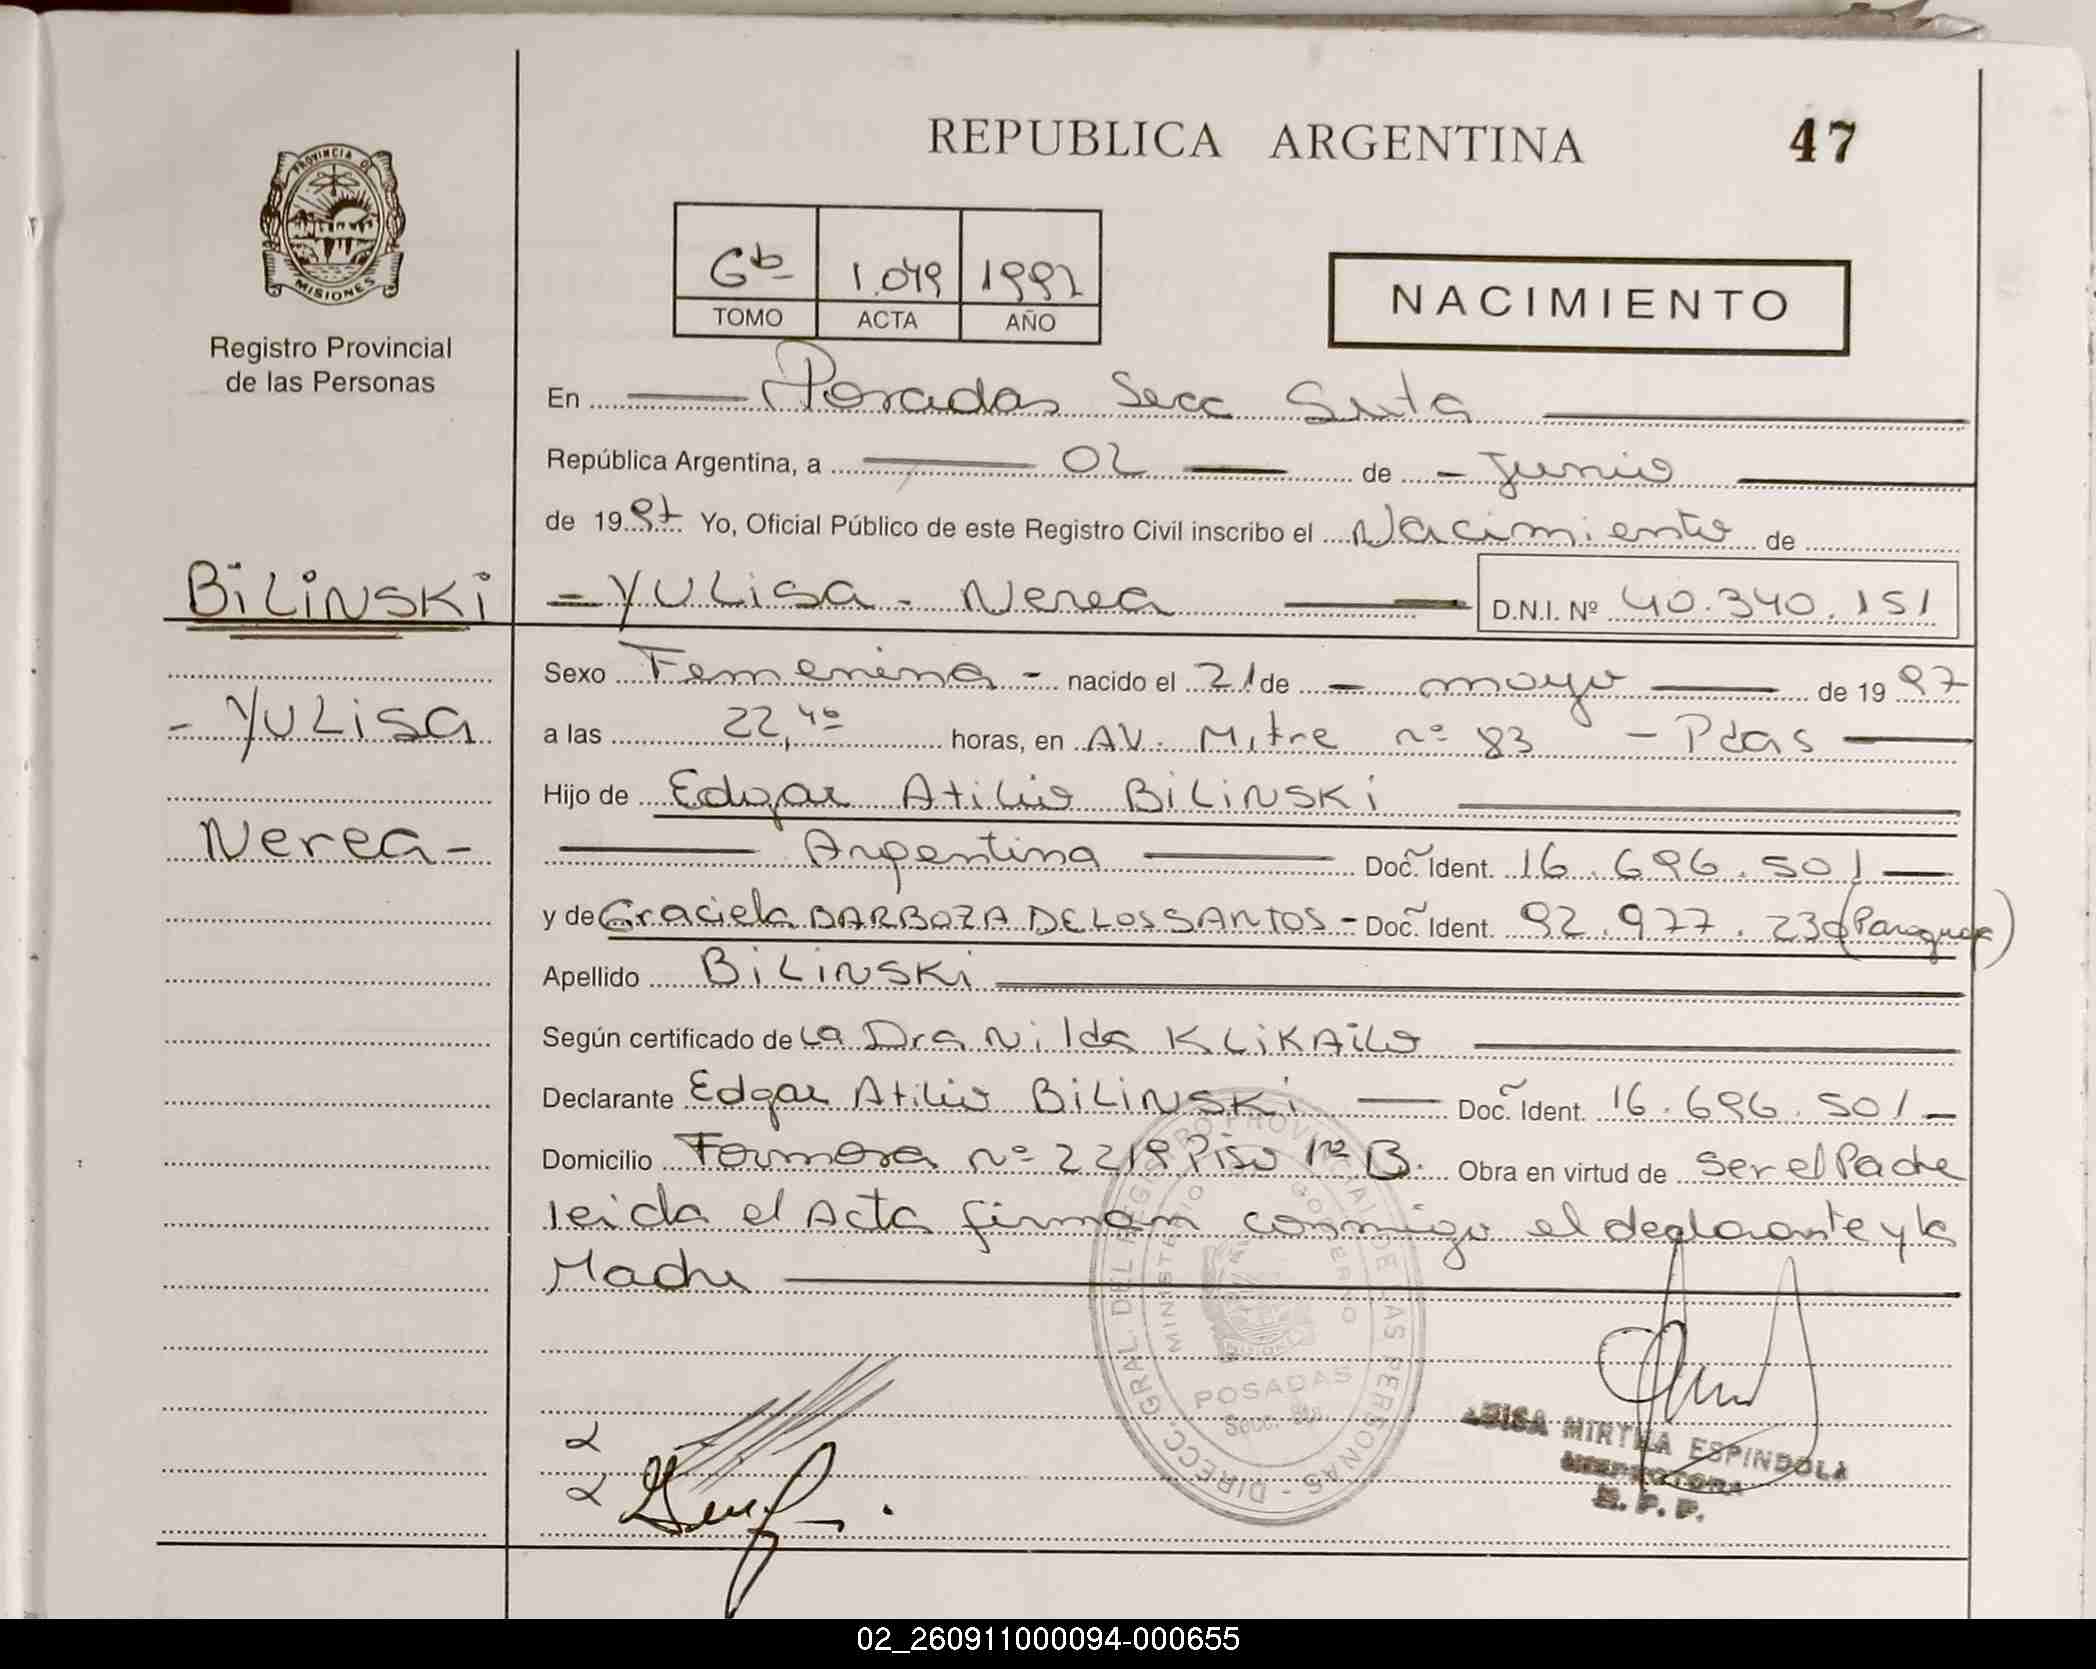 REPUBLICA ARGENTINA
47
PROVINCIA DE
MISIONES
Registro Provincial
de las Personas
6b 1.049 1997
TOMO ACTA AÑO
NACIMIENTO
En Posadas Secc Sexta
República Argentina, a 02 de Junio
de 1997 Yo, Oficial Público de este Registro Civil inscribo el Nacimiento de
BILINSKI
- YULisa - Nerea D.N.I. Nº 40.340.151
Sexo Femenina - nacido el 21 de - mayo de 1997
- YULisa
a las 22,40 horas, en AV. Mitre nº 83 - Pdas
Hijo de Edgar Atilio BILINSKI
Nerea -
Argentina Doc. Ident. 16.696.501
y de Graciela BARBOZA DE LOS SANTOS - Doc. Ident. 92.977.230 (Paraguaya)
Apellido BILINSKI
Según certificado de La Dra Nilda KLIKAILO
Declarante Edgar Atilio BILINSKI Doc. Ident. 16.696.501 -
Domicilio Formosa nº 2219 Piso 1º B. Obra en virtud de ser el Padre
leida el Acta firman conmigo el declarante y la
Madre
DIRECC. GRAL DEL REGISTRO PROVINCIAL DE LAS PERSONAS
MINISTERIO GOBIERNO
POSADAS
Secc.
LUISA MIRTHA ESPINDOLA
R. P. P.
02_260911000094-000655